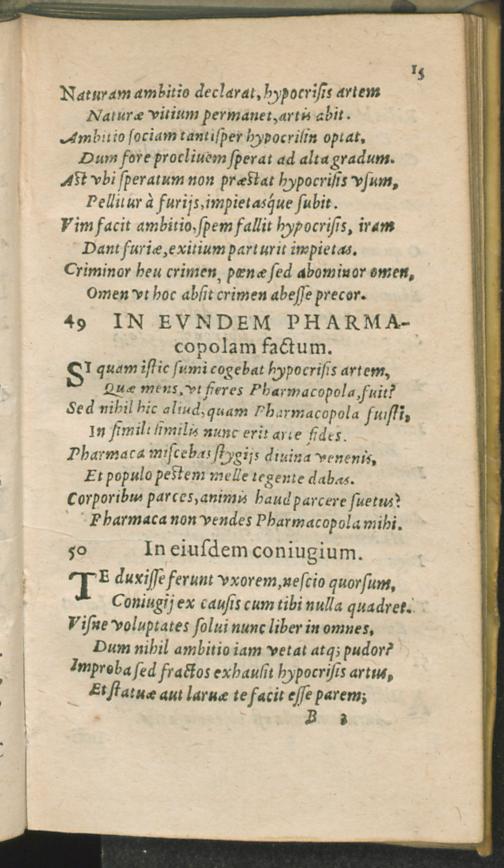 15
Naturam ambitio declarat, hypocrisis artem
Naturæ vitium permanet, artis abit.
Ambitio sociam tantisper hypocrisin optat,
Dum fore procliuem sperat ad alta gradum.
Ast vbi speratum non præstat hypocrisis vsum,
Pellitur à furijs, impietasq́ue subit.
Vim facit ambitio, spem fallit hypocrisis, iram
Dant furiæ, exitium parturit impietas.
Criminor heu crimen, pœnæ sed abominor omen,
Omen vt hoc absit crimen abesse precor.
49 IN EVNDEM PHARMA-
copolam factum.
SI quam istic sumi cogebat hypocrisis artem,
Quæ mens, vt fieres Pharmacopola, fuit?
Sed nihil hic aliud, quam Pharmacopola fuisti,
In simili similis nunc erit arte fides.
Pharmaca miscebas stygijs diuina venenis,
Et populo pestem melle tegente dabas.
Corporibus parces, animis haud parcere suetus?
Pharmaca non vendes Pharmacopola mihi.
50 In eiusdem coniugium.
TE duxisse ferunt vxorem, nescio quorsum,
Coniugij ex causis cum tibi nulla quadret.
Visne voluptates solui nunc liber in omnes,
Dum nihil ambitio iam vetat atq; pudor?
Improba sed fractos exhausit hypocrisis artus,
Et statuæ aut laruæ te facit esse parem;
B 3